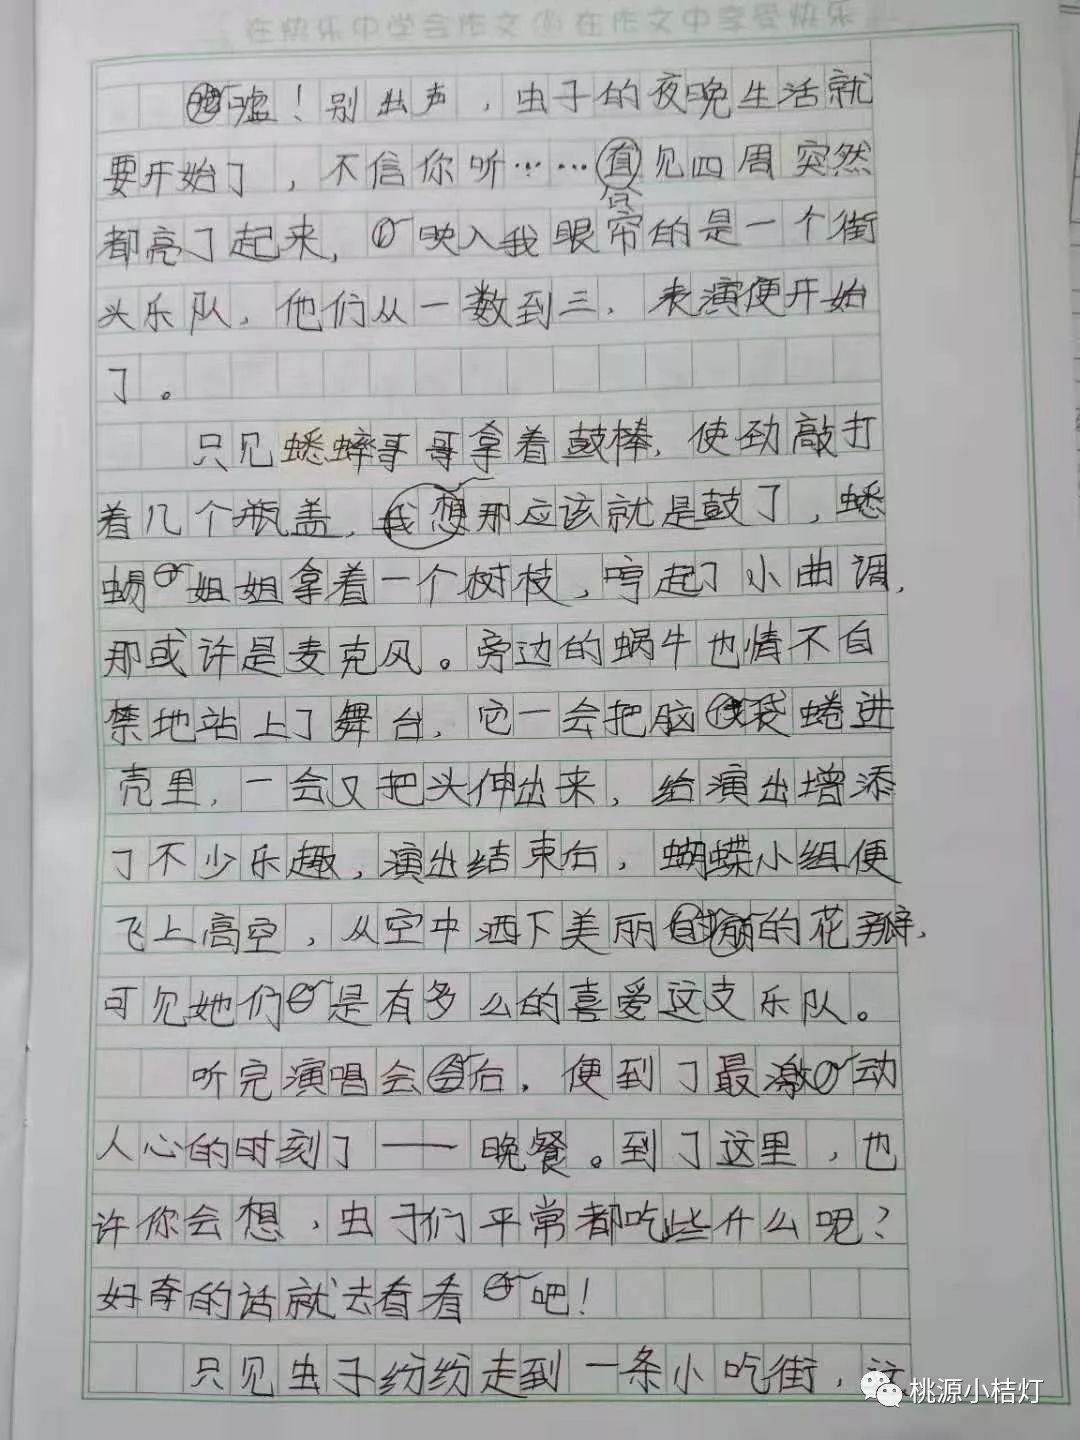 在快乐中学会作文 在作文中享受快乐
嘘！别出声，虫子的夜晚生活就
要开始了，不信你听……直见四周突然
都亮了起来，映入我眼帘的是一个街
头乐队，他们从一数到三，表演便开始
了。
只见蟋蟀哥哥拿着鼓棒，使劲敲打
着几个瓶盖，我想那应该就是鼓了，蟋
蜴姐姐拿着一个树枝，哼起了小曲调，
那或许是麦克风。旁边的蜗牛也情不自
禁地站上了舞台，它一会把脑袋蜷进
壳里，一会又把头伸出来，给演出增添
了不少乐趣，演出结束后，蝴蝶小组便
飞上高空，从空中洒下美丽的花瓣，
可见她们是有多么的喜爱这支乐队。
听完演唱会后，便到了最激动
人心的时刻了——晚餐。到了这里，也
许你会想，虫子们平常都吃些什么呢？
好奇的话就去看看吧！
只见虫子纷纷走到一条小吃街，这
桃源小桔灯